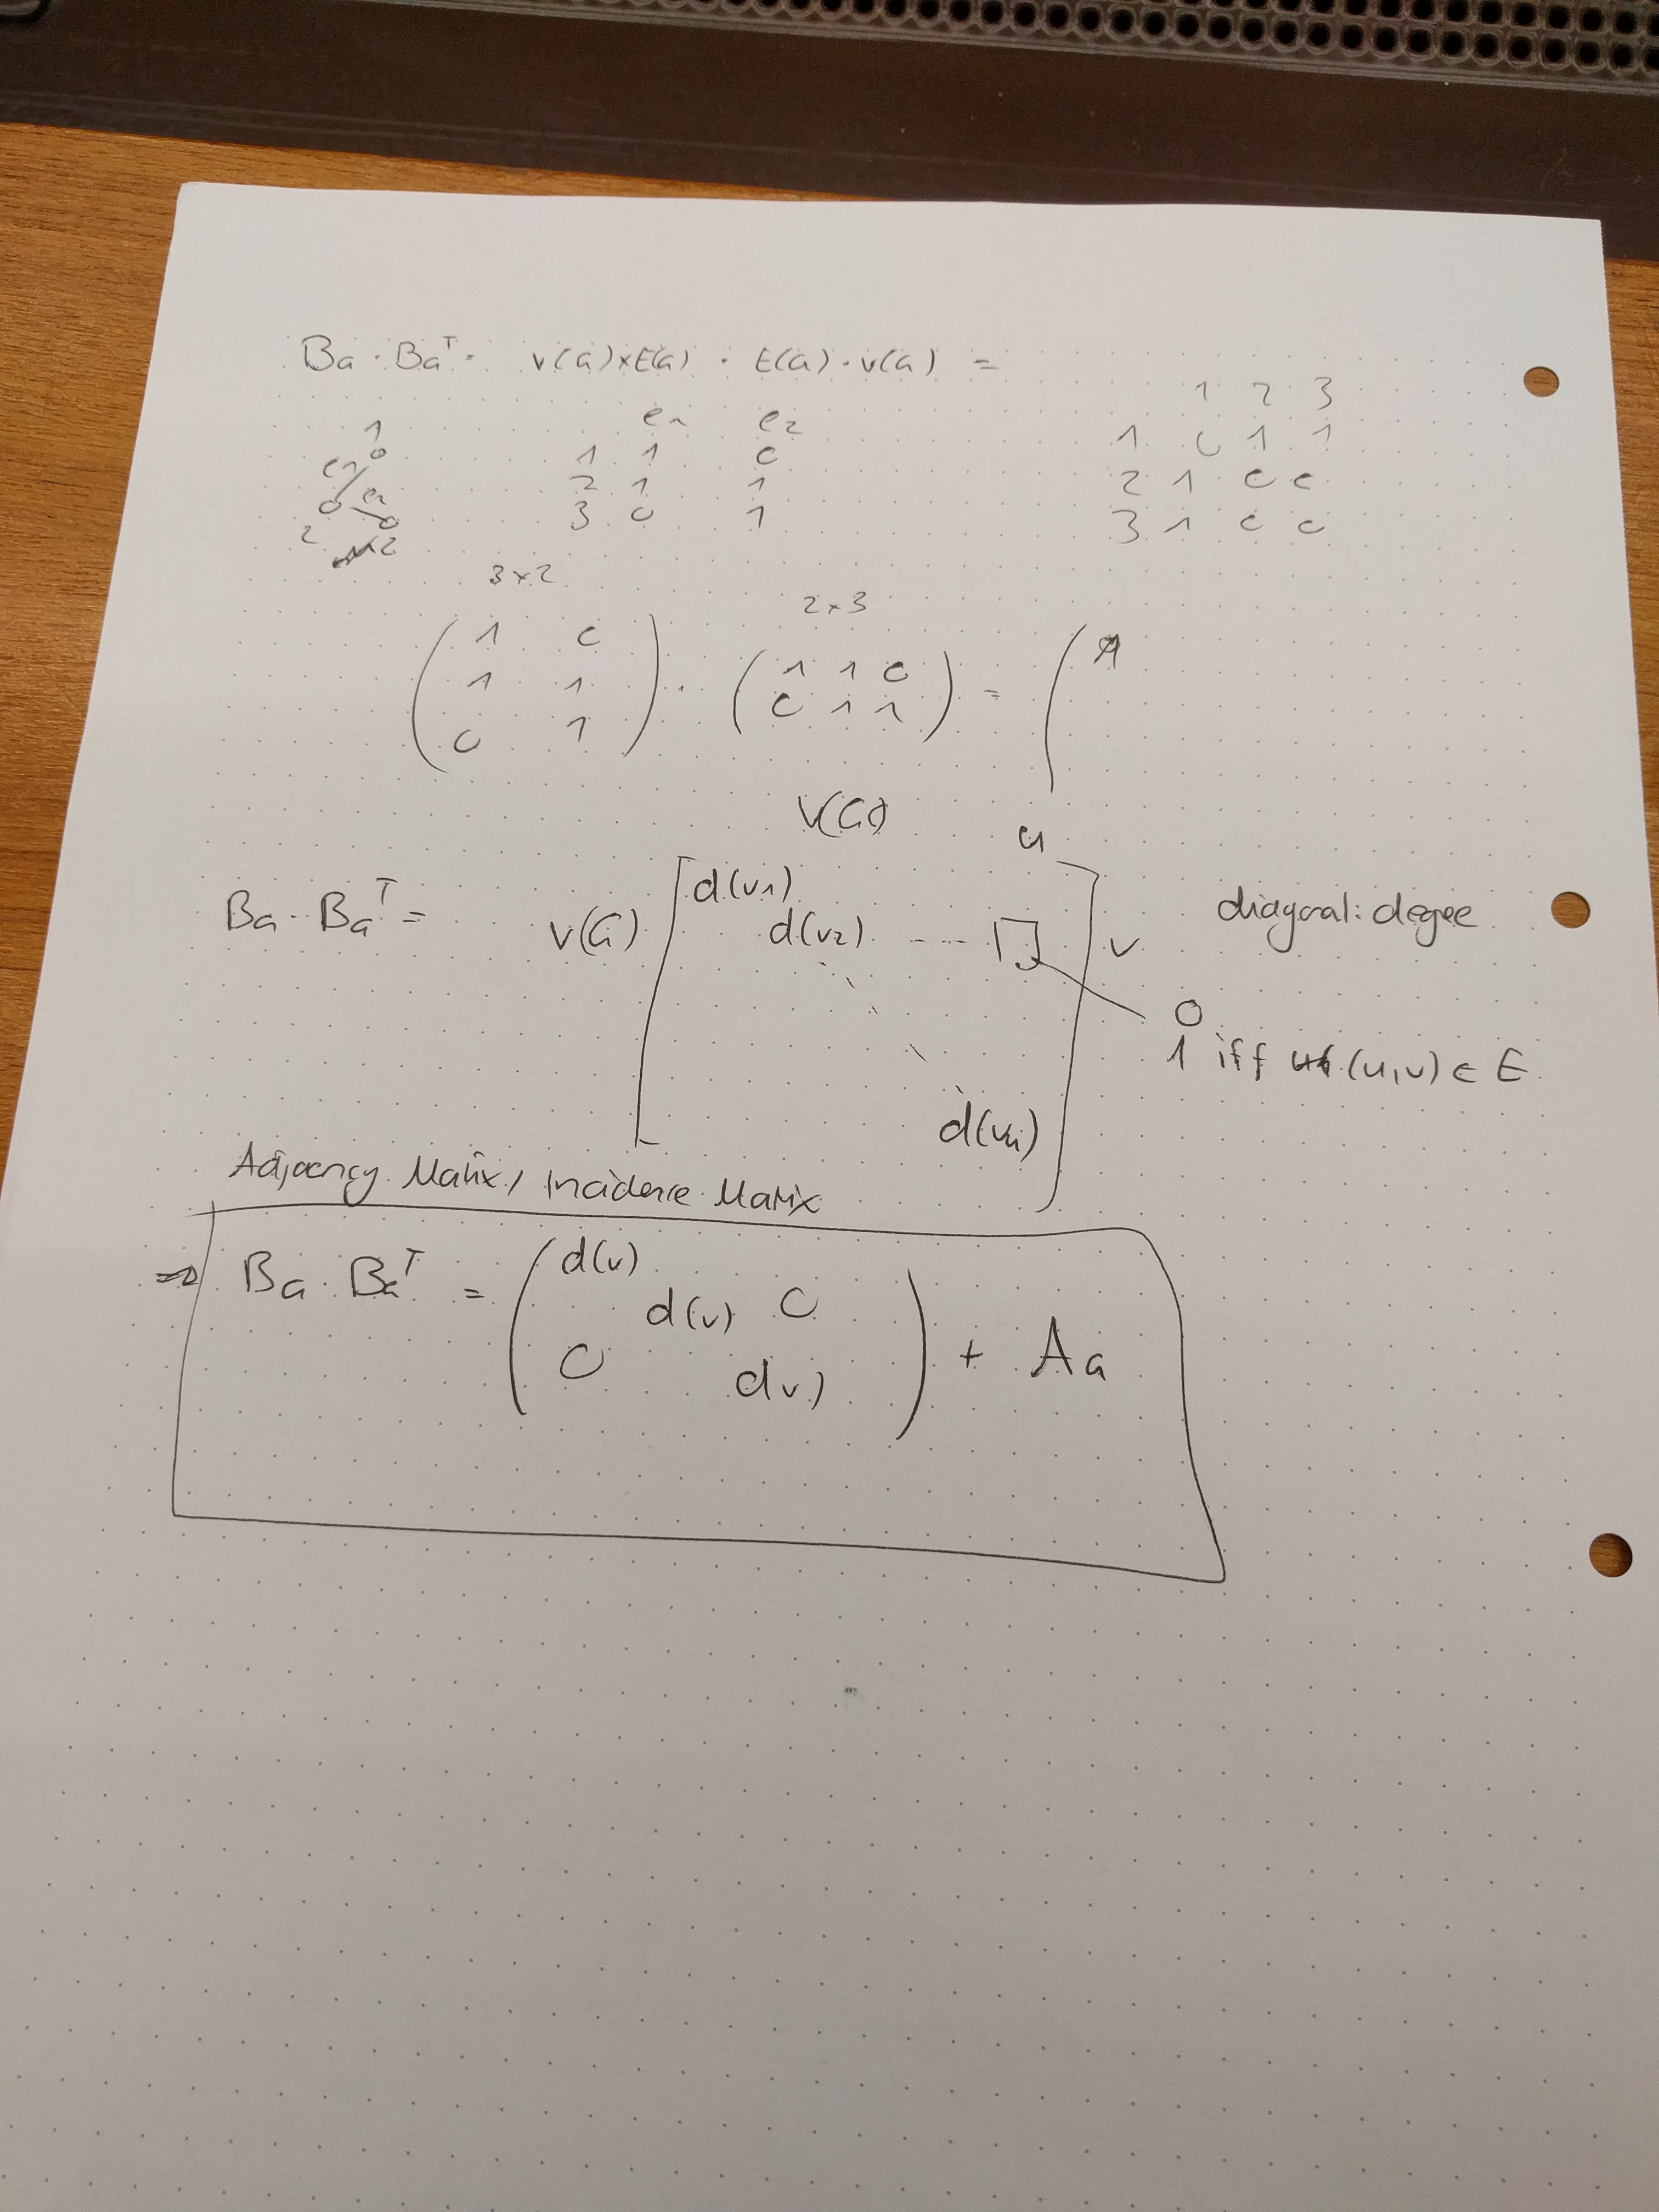 B_G · B_G^T = V(G)×E(G) · E(G)·V(G) =
1 2 3
e1 e2
1
1 1 0
1 0 1 1
e1
2 1 1
2 1 0 0
e2
3 0 1
3 1 0 0
2
2
3×2
2×3
( 1 0
1 1
0 1 ) · ( 1 1 0
0 1 1 ) = (
V(G)
u
B_G · B_G^T = V(G) [ d(v1)
d(v2) --- □ ] v
d(vn)
diagonal: degee
0
1 iff (u,v) ∈ E
Adjacency Matrix / Incidence Matrix
⇒ B_G · B_G^T = ( d(v)
d(v) 0
0 d(v) ) + A_G